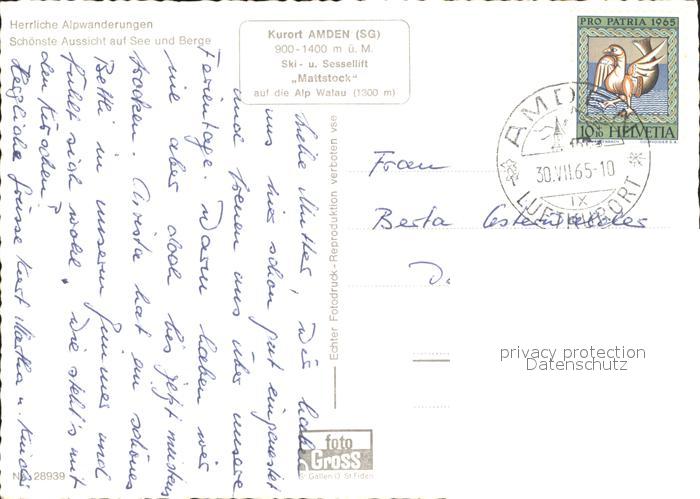 Herrliche Alpwanderungen
Schönste Aussicht auf See und Berge
Kurort AMDEN (SG)
900-1400 m ü. M.
Ski- u. Sessellift
„Mattstock"
auf die Alp Walau (1300 m)
PRO PATRIA 1965
10+10 HELVETIA
AMDEN
30.VII.65-10
IX
LUFTKURORT
Liebe Mutter, wir haben
uns hier schon gut eingenistet
und freuen uns über unsere
Ferientage. Warm haben wir
nie aber doch bis jetzt meistens
trocken. Christa hat ein schönes
Bettli in unserm Zimmer und
fühlt sich wohl. Wie steht's mit
den Kirschen?
Herzliche Grüsse Kurt Martha u. Kinder
Frau
Berta
Echter Fotodruck - Reproduktion verboten
foto
Gross
St Gallen O St Fiden
No 28939
privacy protection
Datenschutz